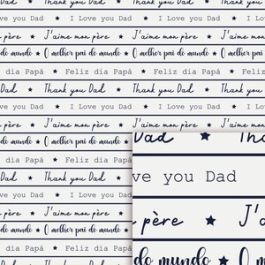 Dad ★ Thank you Dad ★ Thank you
ve you Dad ★ I Love you Dad ★ I Love you Dad
n père ★ J'aime mon père ★ J'aime mon père
do mundo ★ O melhor pai do mundo ★ O melhor pai
dia Papá ★ Feliz dia Papá ★ Feliz
Dad ★ Thank you Dad ★ Thank you Dad
ve you Dad ★ I Love you Dad ★ I Love you Dad
n père ★ J'aime mon père ★ J'aime mon père
do mundo ★ O melhor pai do mundo ★ O melhor pai
dia Papá ★ Feliz dia
Dad ★ Thank you
ve you Dad ★ I Love
n père ★ J'aime mon
do mundo ★ O melhor
dia Papá ★ Feliz dia
Dad ★ Thank you
ve you Dad ★ I Love
n père ★ J'aime mon
do mundo ★ O melhor
dia Papá ★ Feliz dia
Dad ★ Thank you
Dad ★ Than
ve you Dad
père ★ J'a
do mundo ★ O m